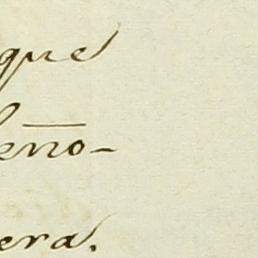 que
eño-
era.